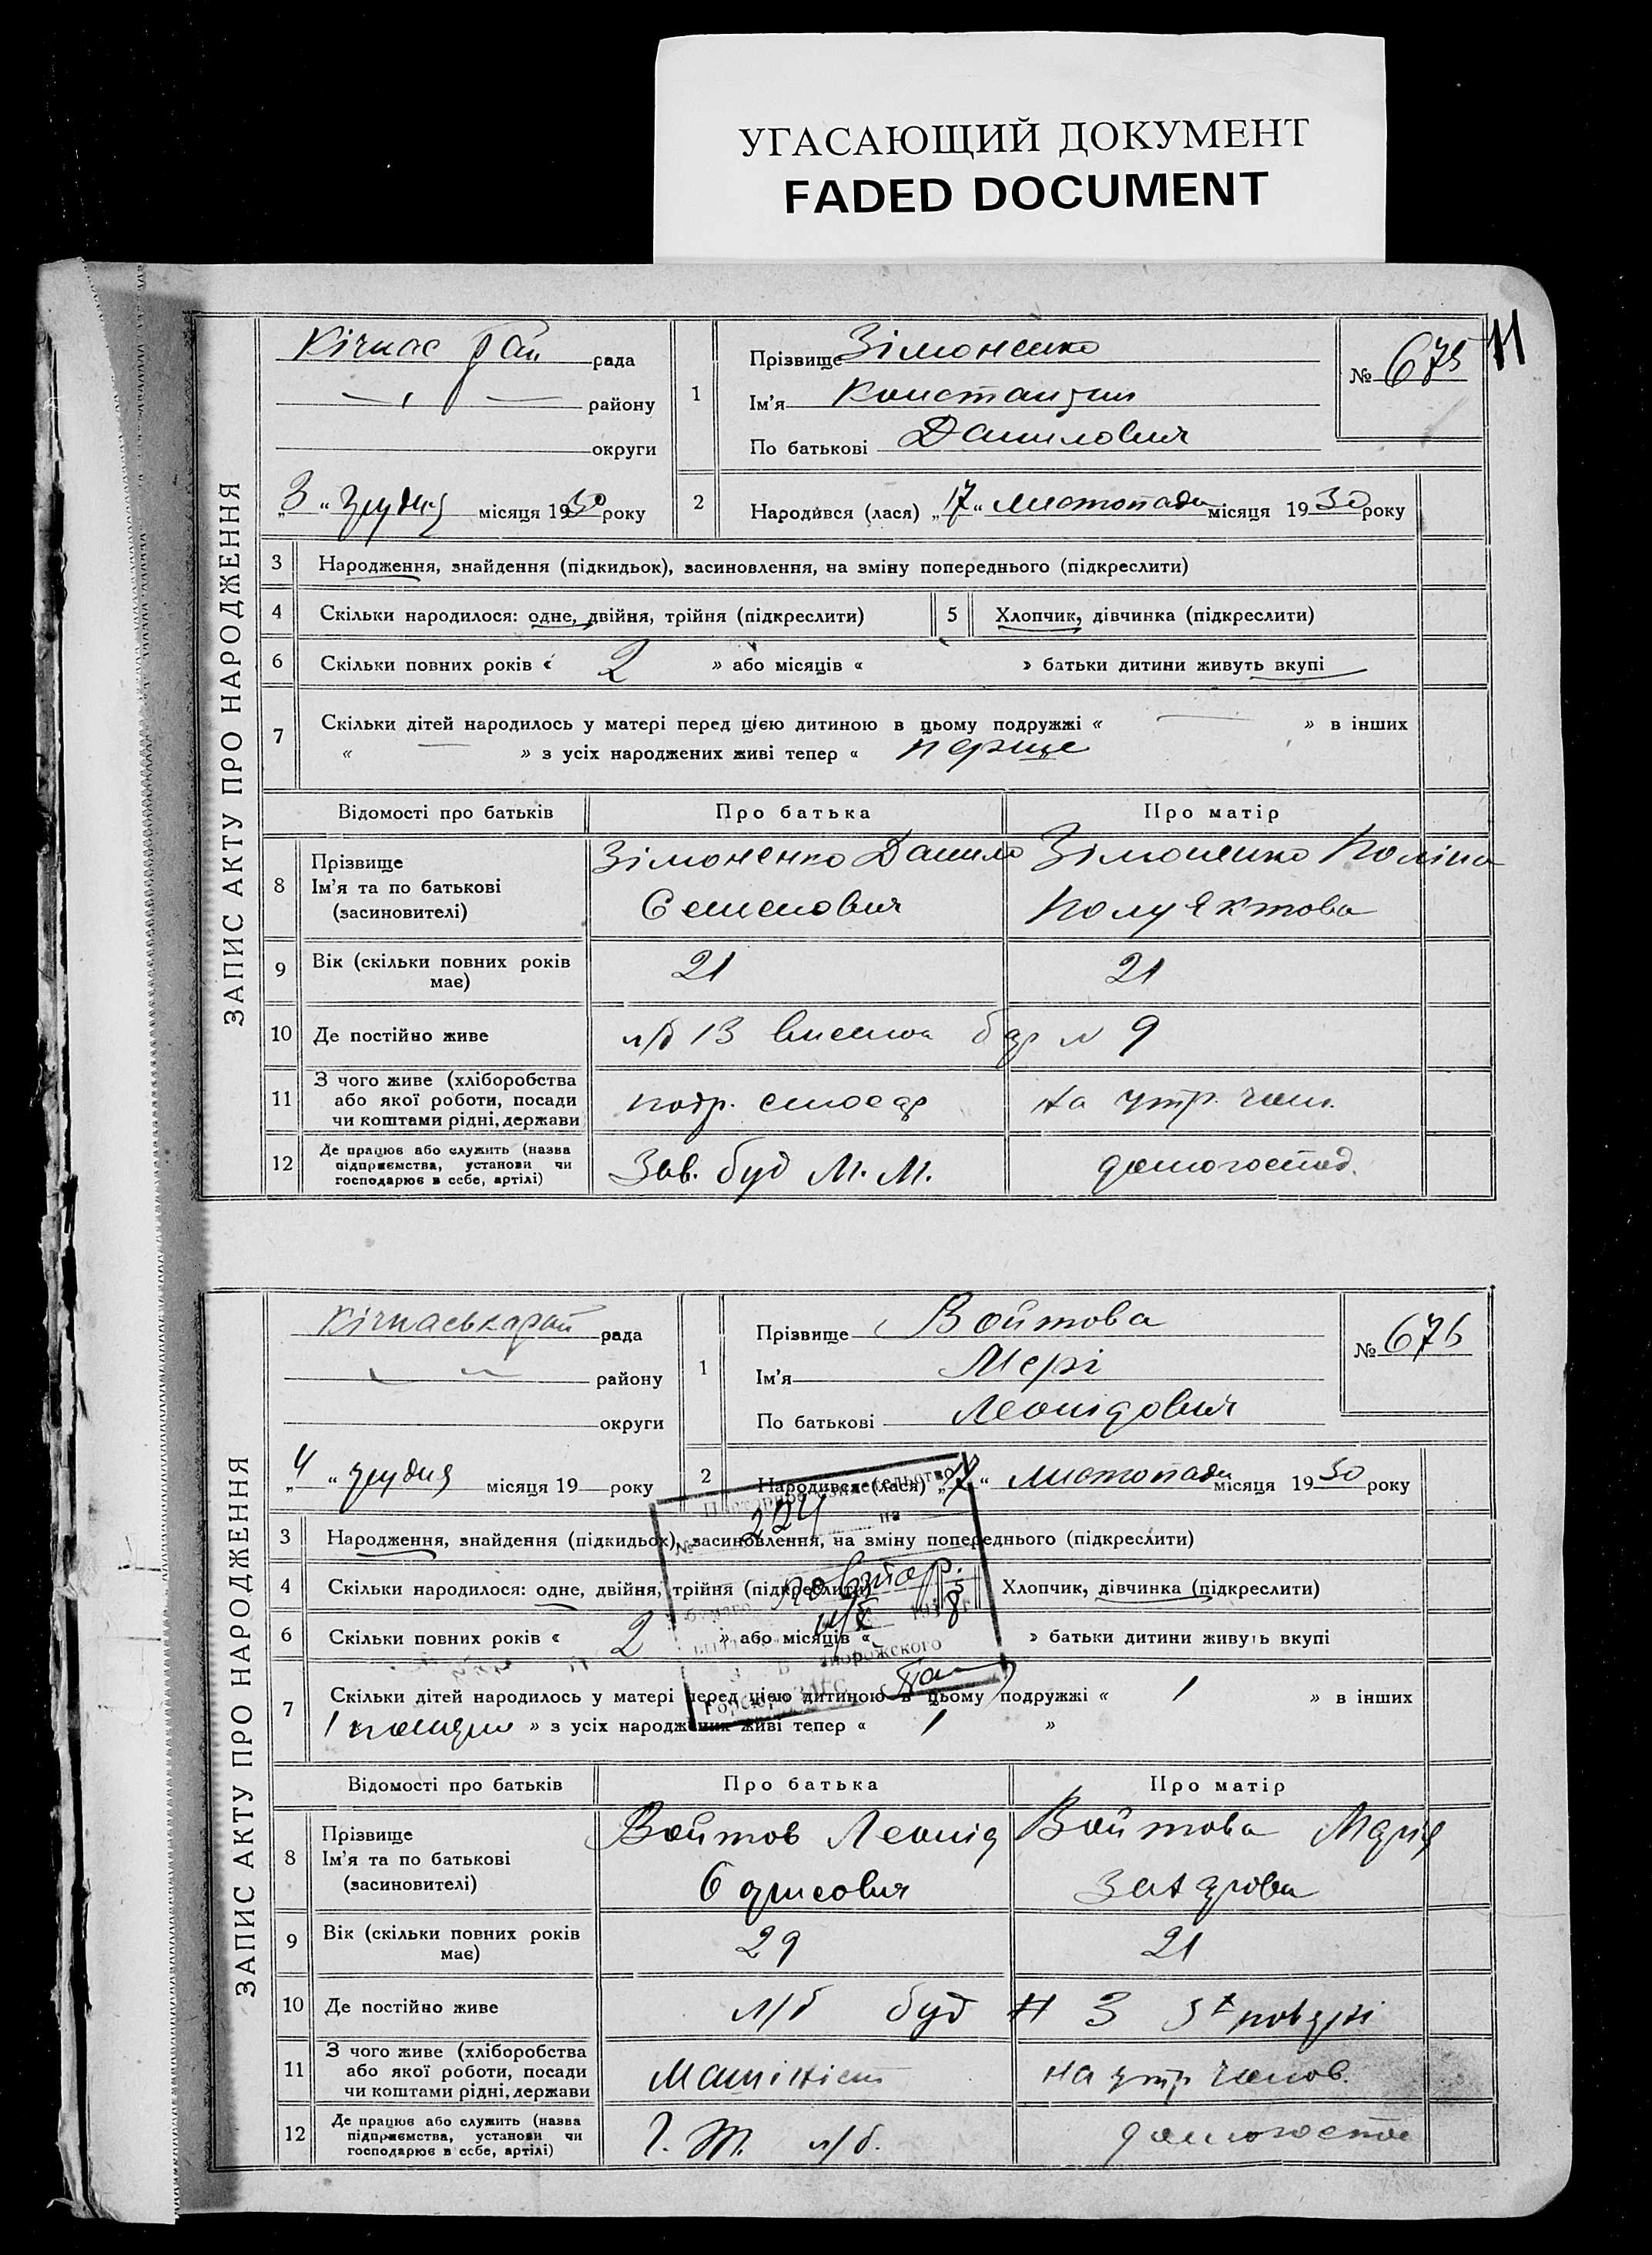 УГАСАЮЩИЙ ДОКУМЕНТ
FADED DOCUMENT
11
ЗАПИС АКТУ ПРО НАРОДЖЕННЯ
Кічкас рай рада
району
округи
„3“ грудня місяця 1930 року
1
Прізвище Зімоненко
Ім'я Константин
По батькові Данилович
№ 675
2 Народився (лася) „17“ листопада місяця 1930 року
3 Народження, знайдення (підкидьок), засиновлення, на зміну попереднього (підкреслити)
4 Скільки народилося: одне, двійня, трійня (підкреслити) 5 Хлопчик, дівчинка (підкреслити)
6 Скільки повних років « 2 » або місяців « » батьки дитини живуть вкупі
7 Скільки дітей народилось у матері перед цією дитиною в цьому подружжі « — » в інших
« — » з усіх народжених живі тепер « перше
Відомості про батьків Про батька Про матір
8 Прізвище
Ім'я та по батькові
(засновителі)
Зімоненко Данило
Семенович
Зімоненко Поліна
9 Вік (скільки повних років має) 21 21
10 Де постійно живе л/б 13 9
11 З чого живе (хліборобства
або якої роботи, посади
чи коштами рідні, держави
на утр. чол.
12 Де працює або служить (назва
підприємства, установи чи
господарює в себе, артілі)
Зав. буд М. М. домогоспод.
ЗАПИС АКТУ ПРО НАРОДЖЕННЯ
Кічкаськ рай рада
району
округи
„4“ грудня місяця 19 року
1
Прізвище Войтова
Ім'я Мері
По батькові Леонідович
№ 676
2 Народився (лася) „17“ листопада місяця 1930 року
3 Народження, знайдення (підкидьок), засиновлення, на зміну попереднього (підкреслити)
4 Скільки народилося: одне, двійня, трійня (підкреслити) 5 Хлопчик, дівчинка (підкреслити)
6 Скільки повних років « 2 » або місяців « » батьки дитини живуть вкупі
7 Скільки дітей народилось у матері перед цією дитиною в цьому подружжі « 1 » в інших
1 » з усіх народжених живі тепер « 1 »
№ 224 на
повтор.
Відомості про батьків Про батька Про матір
8 Прізвище
Ім'я та по батькові
(засиновителі)
Войтов Леонід
Войтова Марія
Захарова
9 Вік (скільки повних років має) 29 21
10 Де постійно живе л/б буд № 3
11 З чого живе (хліборобства
або якої роботи, посади
чи коштами рідні, держави
Машініст на утр чолов.
12 Де працює або служить (назва
підприємства, установи чи
господарює в себе, артілі)
л/б. домогоспод